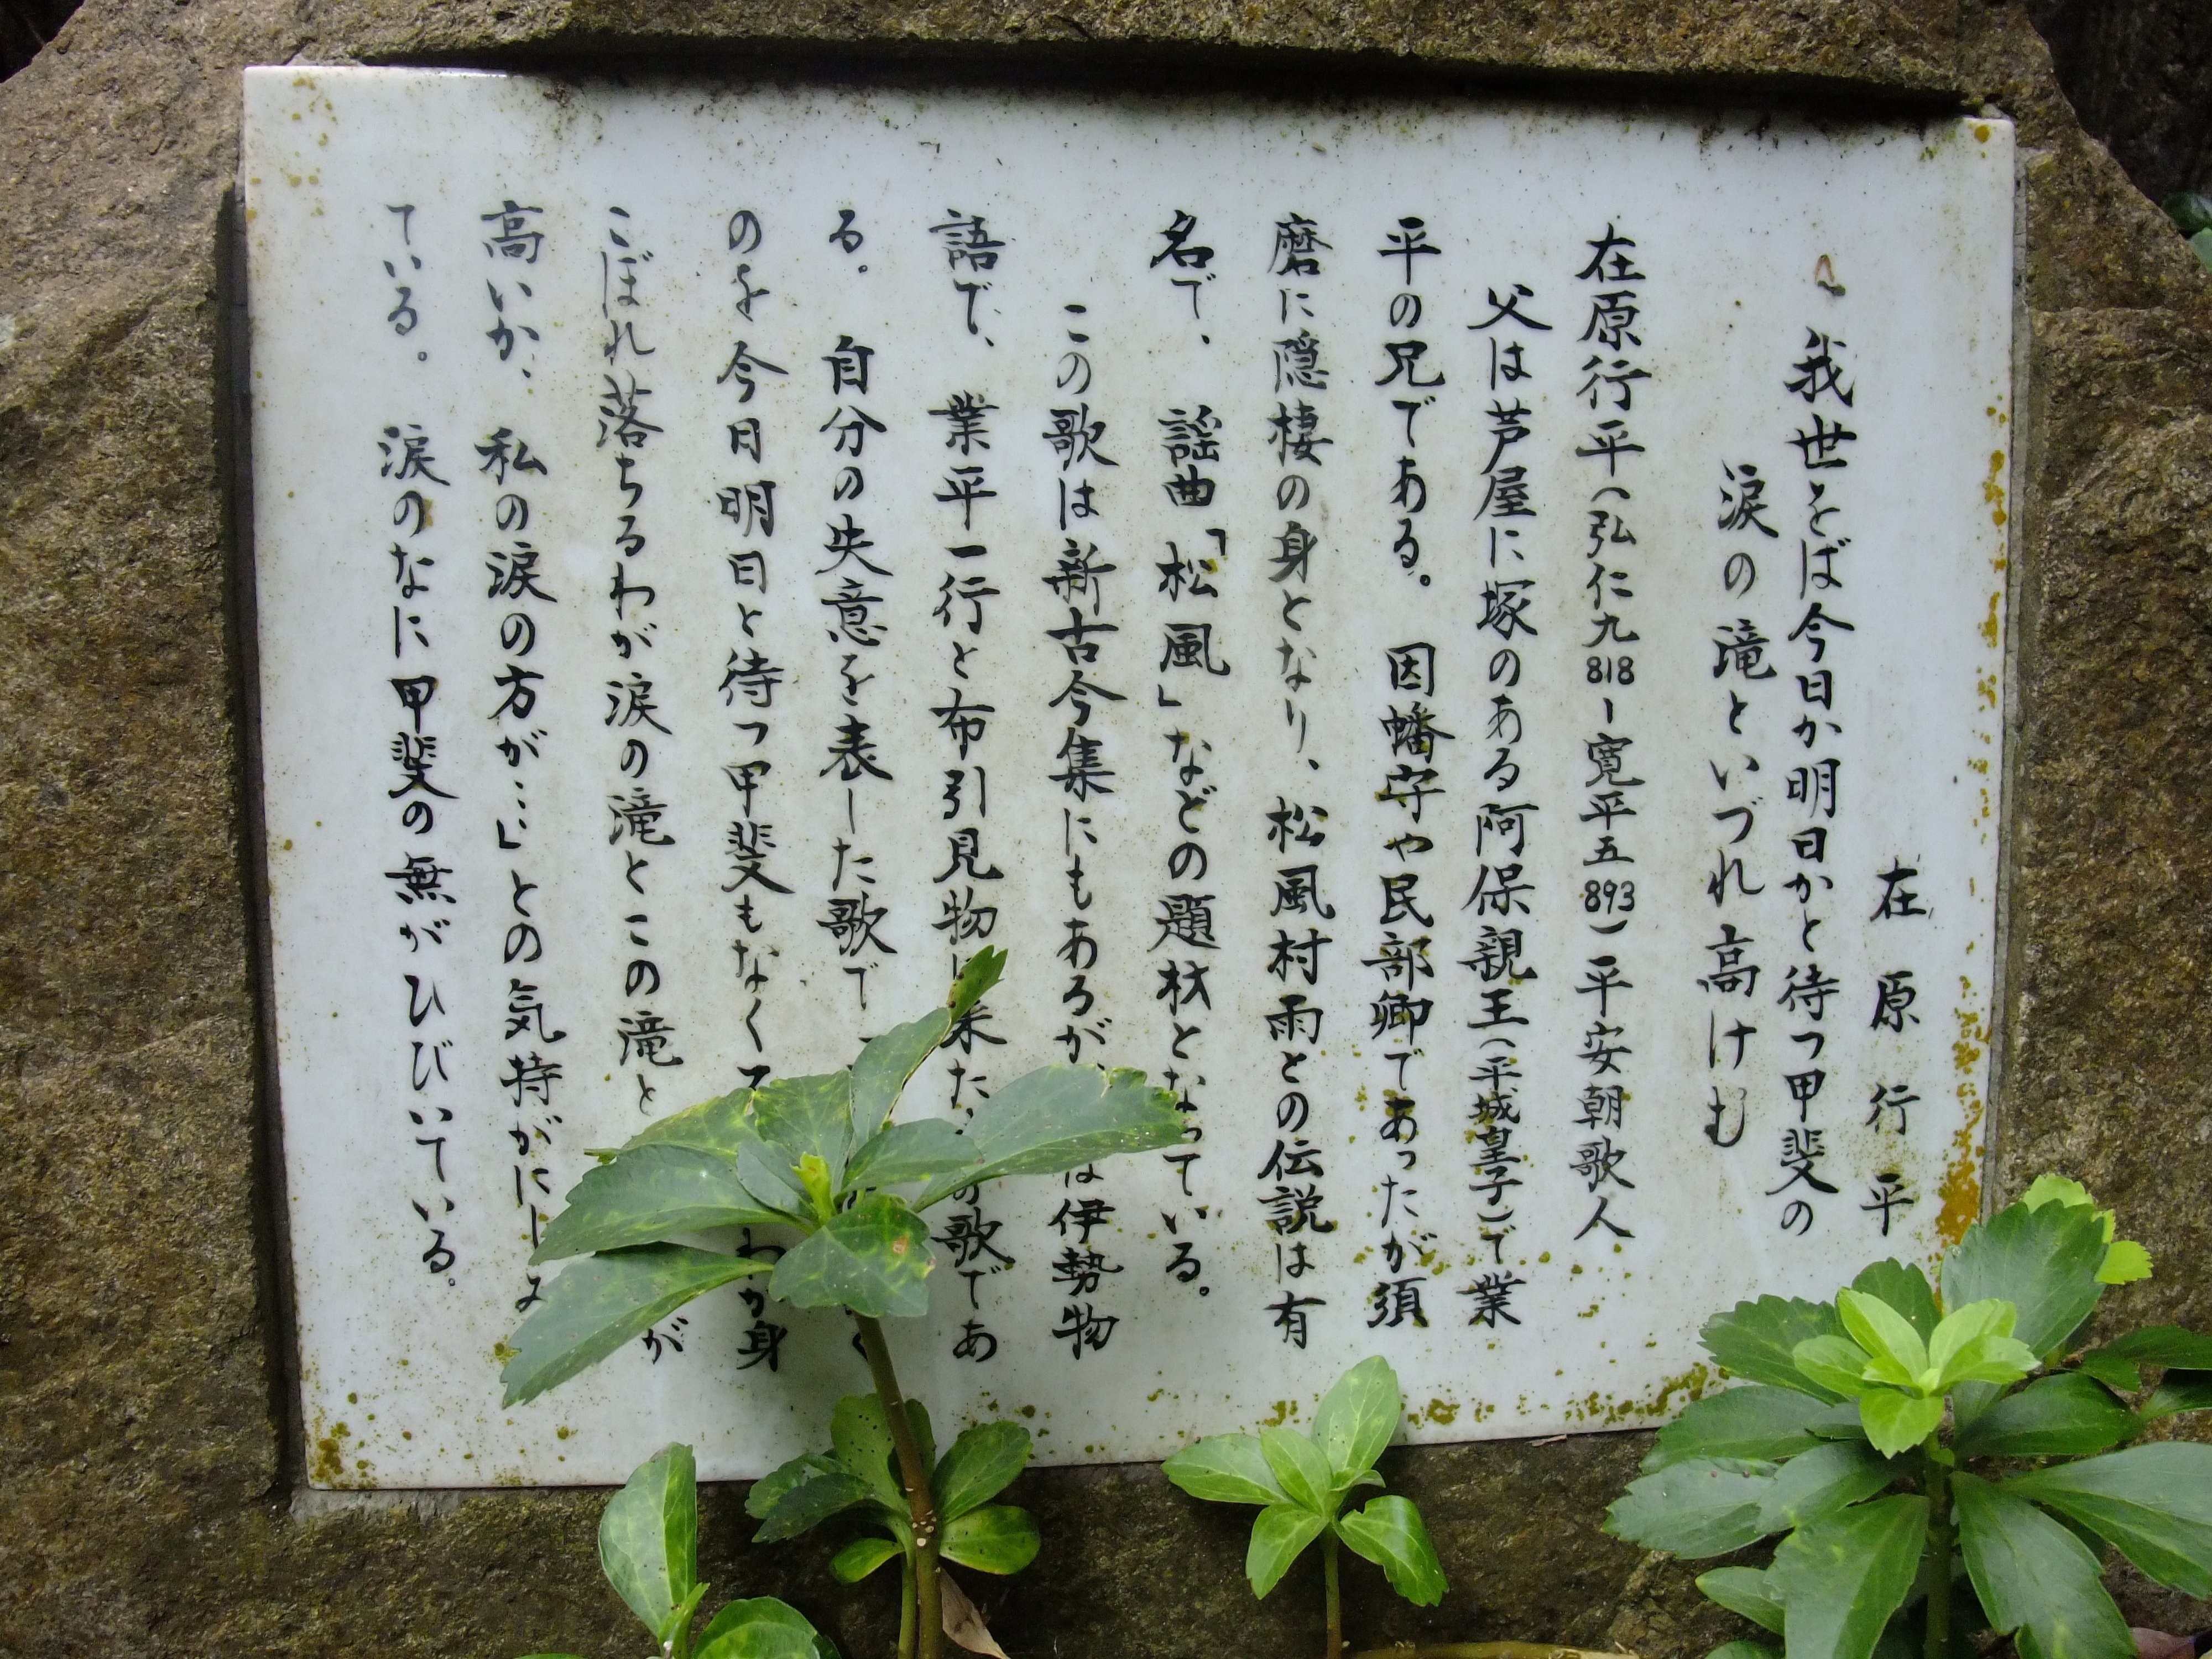 在原行平
我世をば今日か明日かと待つ甲斐の
涙の滝といづれ高けむ
在原行平(弘仁九818-寛平五893)平安朝歌人
父は芦屋に塚のある阿保親王(平城皇子)で業
平の兄である。因幡守や民部卿であったが須
磨に隠棲の身となり、松風村雨との伝説は有
名で、謡曲「松風」などの題材となっている。
この歌は新古今集にもあるが、は伊勢物
語で、業平一行と布引見物に来た歌であ
る。自分の失意を表した歌で
のを今日明日と待つ甲斐もなくて身
こぼれ落ちるわが涙の滝とこの滝とが
高いか…私の涙の方が…」との気持がにじみ
ている。涙のなに甲斐の無がひびいている。